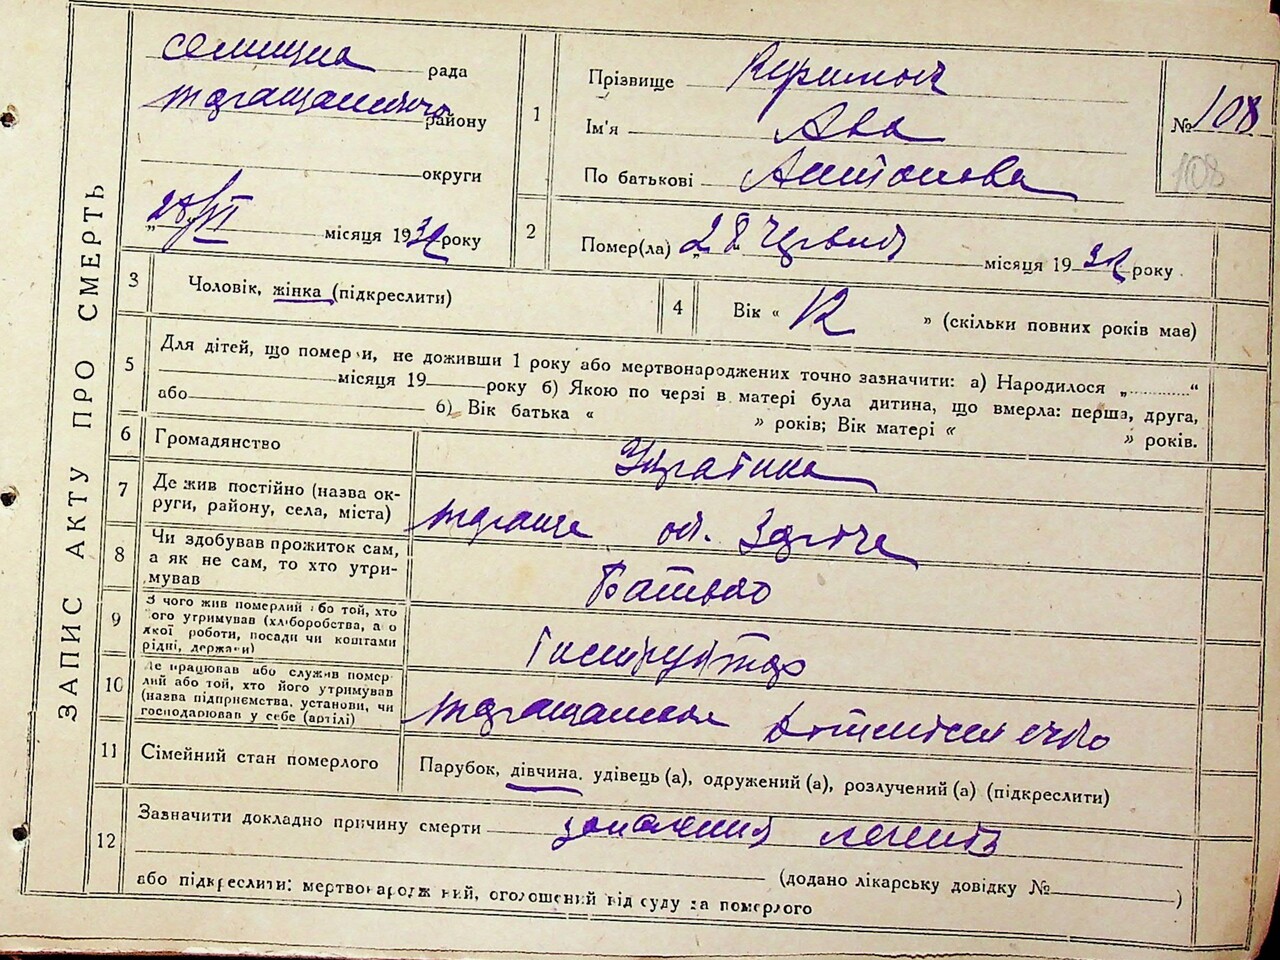 ЗАПИС АКТУ ПРО СМЕРТЬ
селищна рада
району
округи
28/VI місяця 1932 року
1
Прізвище
Ім'я Ава
По батькові Антонова
№ 108
108
2
Помер(ла) „28 червня місяця 1932 року
3
Чоловік, жінка (підкреслити)
4
Вік « 12 » (скільки повних років має)
5
Для дітей, що померли, не доживши 1 року або мертвонароджених точно зазначити: а) Народилося „ “
місяця 19 року б) Якою по черзі в матері була дитина, що вмерла: перша, друга,
або б) Вік батька « » років; Вік матері « » років.
6
Громадянство
7
Де жив постійно (назва ок-
руги, району, села, міста)
8
Чи здобував прожиток сам,
а як не сам, то хто утри-
мував
Батько
9
З чого жив померлий або той, хто
його утримував (хліборобства, або
якої роботи, посади чи коштами
рідні, держави)
10
Де працював або служив помер-
лий або той, хто його утримував
(назва підприємства, установи, чи
господарював у себе (артілі)
11
Сімейний стан померлого
Парубок, дівчина, удівець (а), одружений (а), розлучений (а) (підкреслити)
12
Зазначити докладно причину смерти запалення легенів
(додано лікарську довідку № )
або підкреслити: мертвонароджений, оголошений від суду за померлого